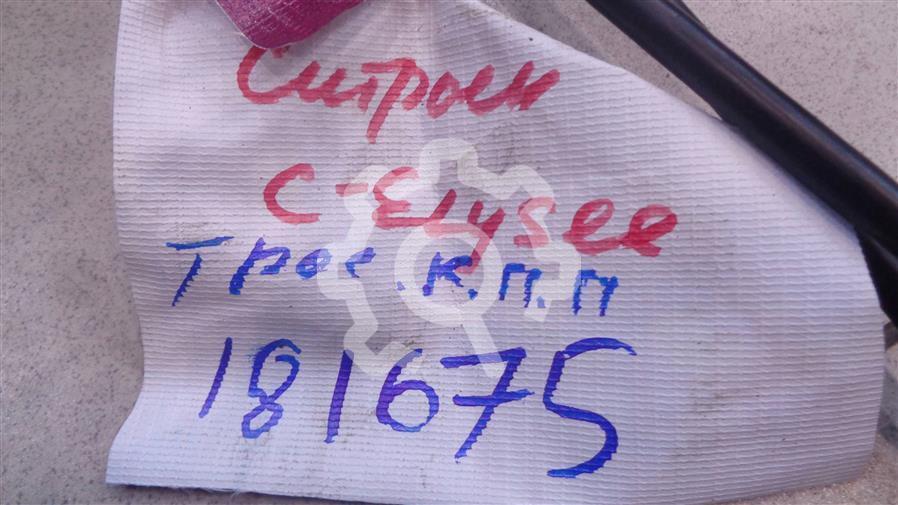 Ситроен
C-Elysee
Трос.к.п.п
181675